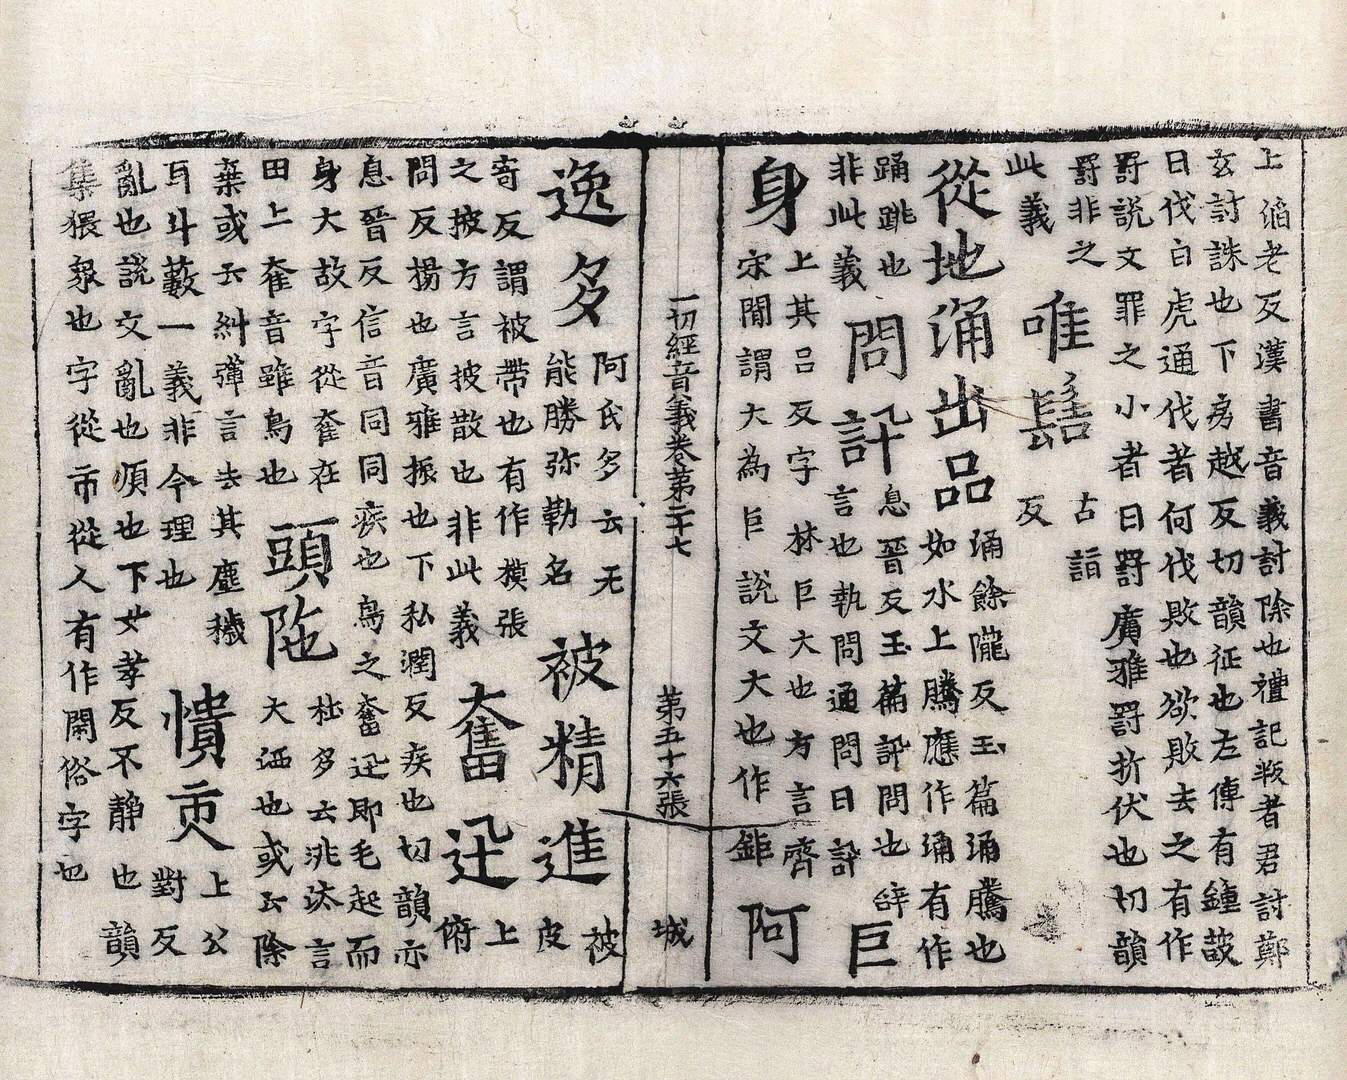 上滔老反漢書音義討除也禮記叛者君討鄭
玄討誅也下房越反切韻征也左傳有鍾鼓
曰伐白虎通伐者何伐敗也欲敗去之有作
罸說文罪之小者曰罸廣雅罸折伏也切韻
罸非之
此義
唯髻
古詣
反
從地涌出品
涌餘隴反玉篇涌騰也
如水上騰應作涌有作
踊跳也
非此義
問訊
息晉反玉篇訊問也辝
言也執問通問曰訊
巨
身
上其呂反字林巨大也方言齊
宋間謂大為巨說文大也作鉅
阿
一切經音義卷第二十七 第五十六張 城
逸多
阿氏多云无
能勝弥勒名
被精進
被
皮
寄反謂被帶也有作摸張
之披方言披散也非此義
奮迅
上
俯
問反揚也廣雅振也下私潤反疾也切韻亦
息晉反信音同同疾也鳥之奮迅即毛起而
身大故字從奞在
田上奞音雖鳥也
頭陁
杜多云洮汰言
大洒也或云除
棄或云糾彈言去其塵穢
耳斗藪一義非今理也
憒
上公
對反
亂也說文亂也煩也下女孝反不静也韻
集猥衆也字從市從人有作閙俗字也